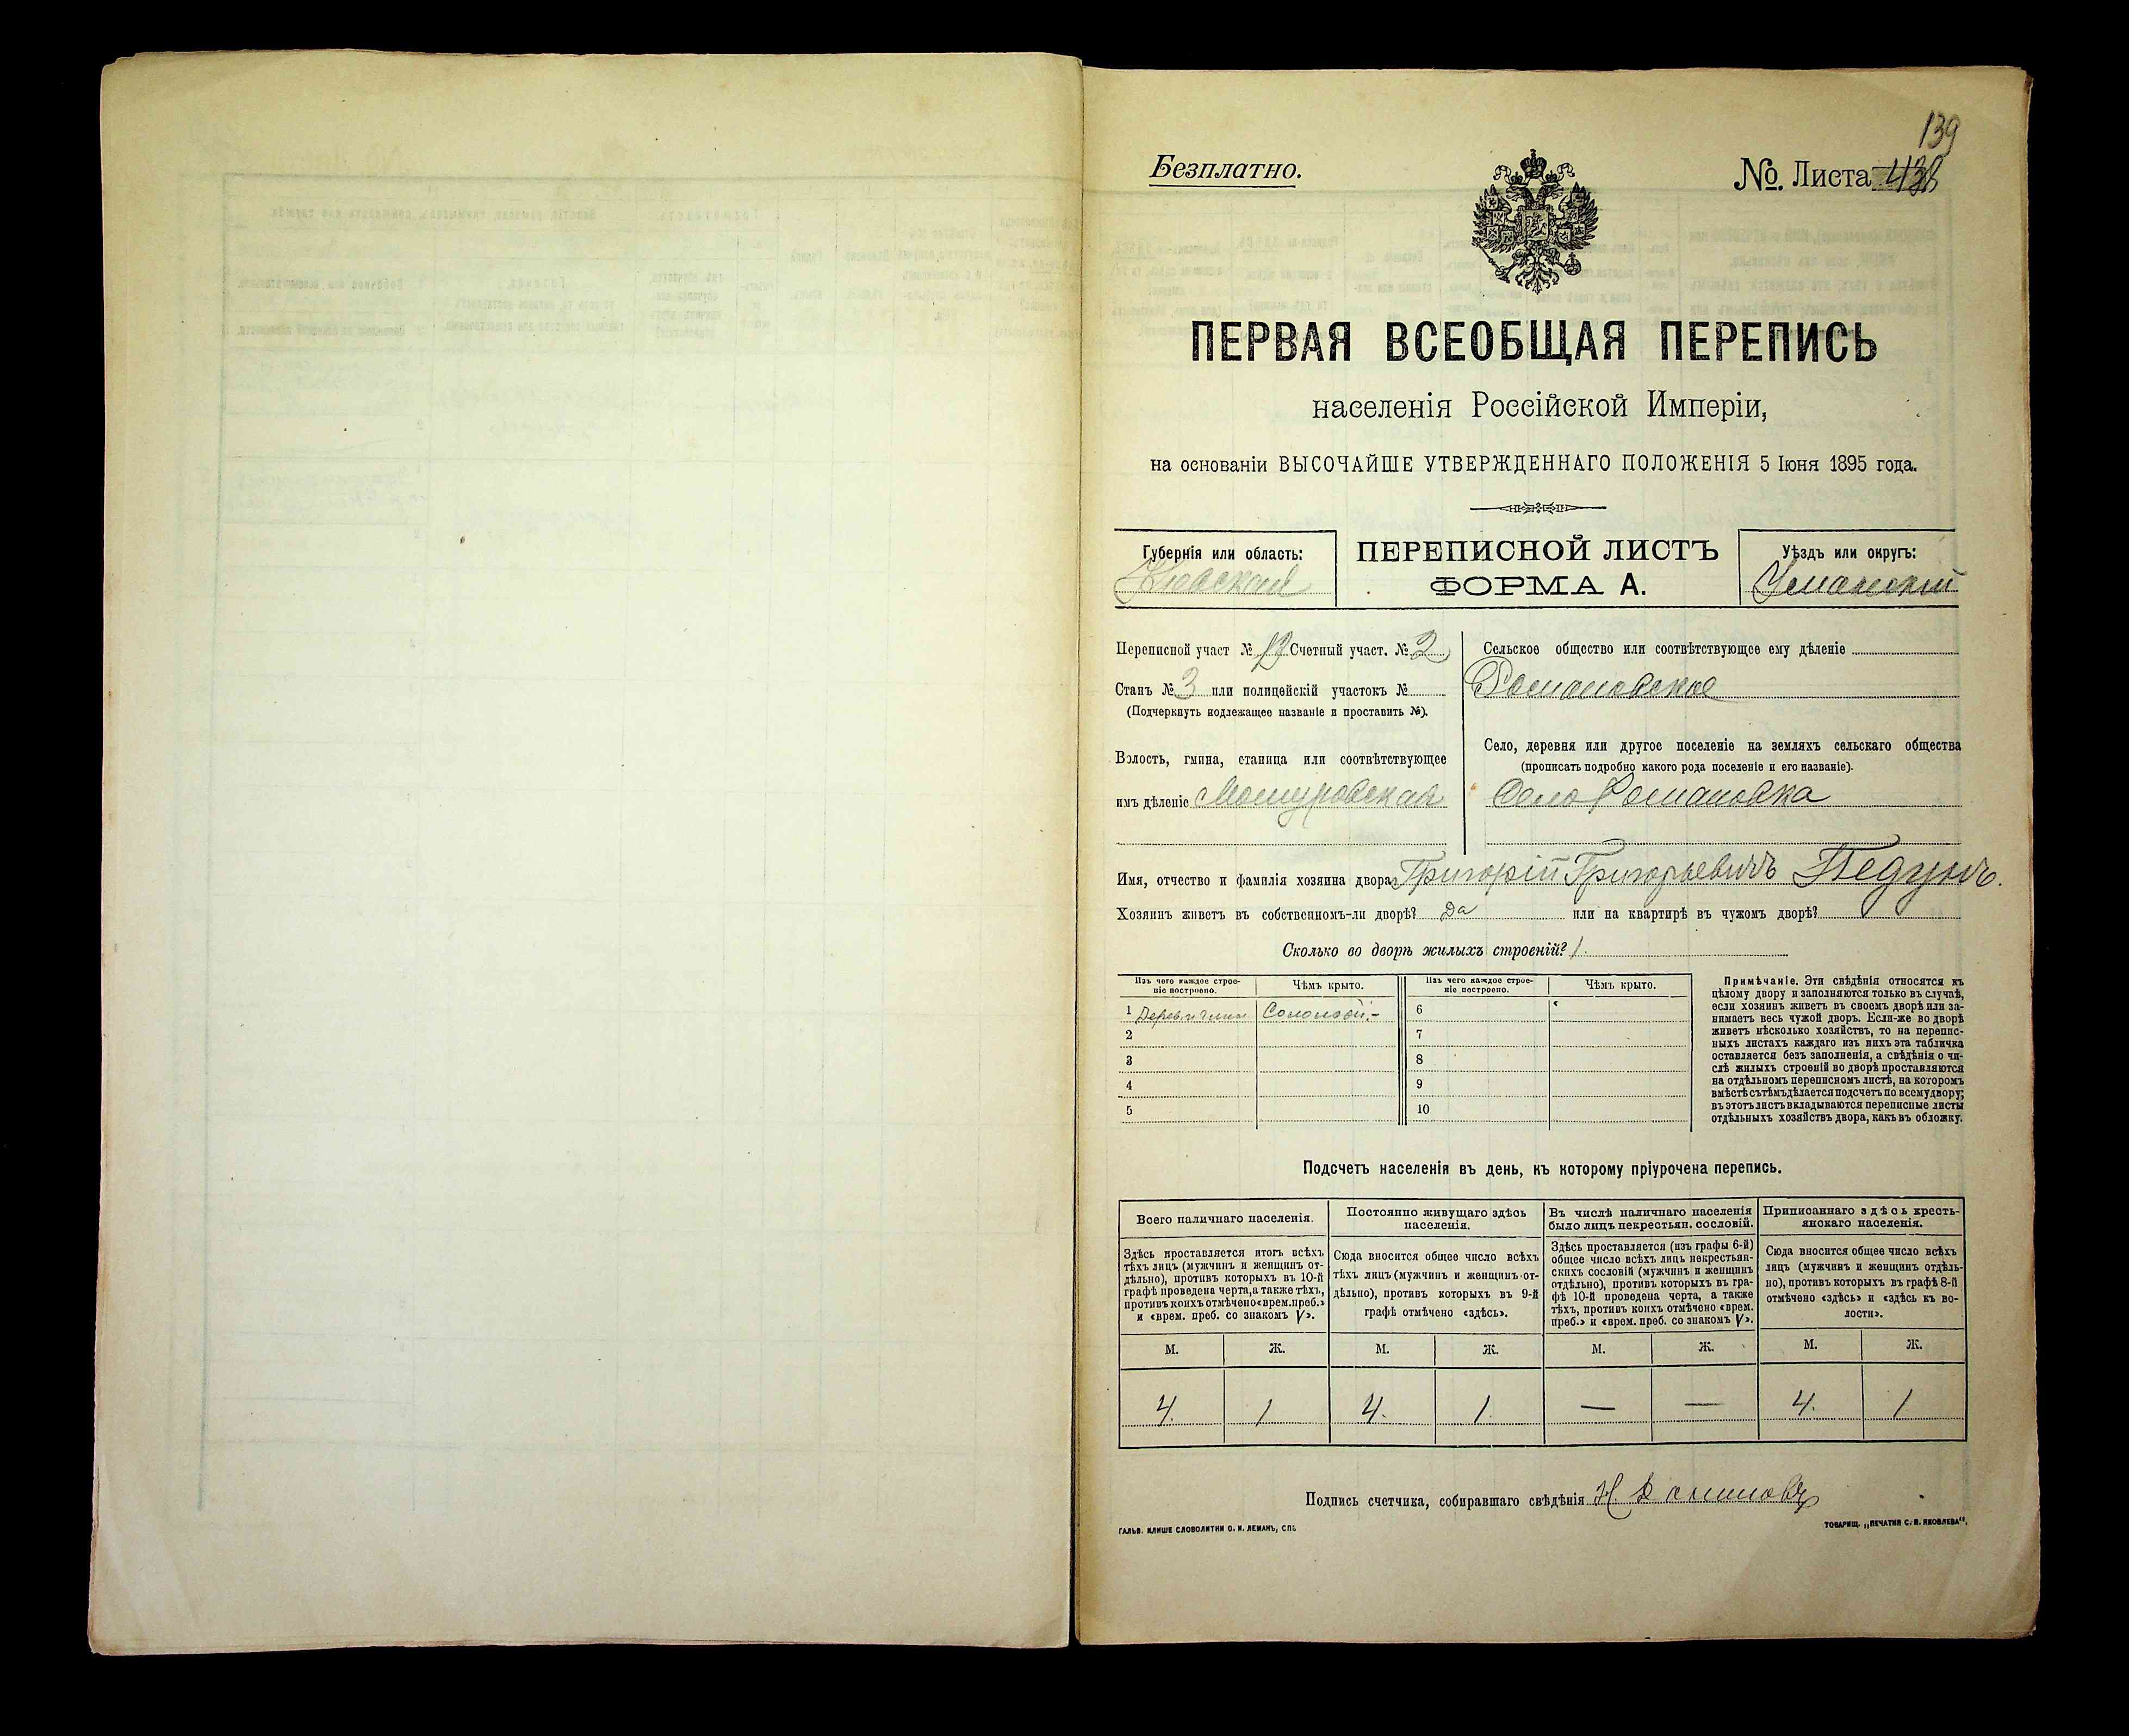 139
Безплатно.
№. Листа 138
ПЕРВАЯ ВСЕОБЩАЯ ПЕРЕПИСЬ
населенія Россійской Имперіи,
на основаніи ВЫСОЧАЙШЕ УТВЕРЖДЕННАГО ПОЛОЖЕНІЯ 5 Іюня 1895 года.
Губернія или область:
Кіевская
ПЕРЕПИСНОЙ ЛИСТЪ
ФОРМА А.
Уѣздъ или округъ:
Уманскій
Переписной участ № Счетный участ. № 2
Станъ № 3 или полицейскій участокъ №
(Подчеркнуть подлежащее названіе и проставить №).
Волость, гмина, станица или соотвѣтствующее
имъ дѣленіе Мошуровская
Сельское общество или соотвѣтствующее ему дѣленіе
Романовское
Село, деревня или другое поселеніе на земляхъ сельскаго общества
(прописать подробно какого рода поселеніе и его названіе).
Село Романовка
Имя, отчество и фамилія хозяина двора Григорій Григорьевичъ
Хозяинъ живетъ въ собственномъ-ли дворѣ? да или на квартирѣ въ чужомъ дворѣ?
Сколько во дворѣ жилыхъ строеній? 1.
Изъ чего каждое строе-
ніе построено.
Чѣмъ крыто.
Изъ чего каждое строе-
ніе построено.
Чѣмъ крыто.
1 Дерев. и глин Соломой.- 6
2 7
3 8
4 9
5 10
Примѣчаніе. Эти свѣдѣнія относятся къ
цѣлому двору и заполняются только въ случаѣ,
если хозяинъ живетъ въ своемъ дворѣ или за-
нимаетъ весь чужой дворъ. Если-же во дворѣ
живетъ нѣсколько хозяйствъ, то на перепис-
ныхъ листахъ каждаго изъ нихъ эта табличка
оставляется безъ заполненія, а свѣдѣнія о чи-
слѣ жилыхъ строеній во дворѣ проставляются
на отдѣльномъ переписномъ листѣ, на которомъ
вмѣстѣ съ тѣмъ дѣлается подсчетъ по всему двору;
въ этотъ листъ вкладываются переписные листы
отдѣльныхъ хозяйствъ двора, какъ въ обложку.
Подсчетъ населенія въ день, къ которому пріурочена перепись.
Всего наличнаго населенія.
Здѣсь проставляется итогъ всѣхъ
тѣхъ лицъ (мужчинъ и женщинъ от-
дѣльно), противъ которыхъ въ 10-й
графѣ проведена черта, а также тѣхъ,
противъ коихъ отмѣчено «врем. преб.»
и «врем. преб. со знакомъ V».
Постоянно живущаго здѣсь
населенія.
Сюда вносится общее число всѣхъ
тѣхъ лицъ (мужчинъ и женщинъ от-
дѣльно), противъ которыхъ въ 9-й
графѣ отмѣчено «здѣсь».
Въ числѣ наличнаго населенія
было лицъ некрестьян. сословій.
Здѣсь проставляется (изъ графы 6-й)
общее число всѣхъ лицъ некрестьян-
скихъ сословій (мужчинъ и женщинъ
отдѣльно), противъ которыхъ въ гра-
фѣ 10-й проведена черта, а также
тѣхъ, противъ коихъ отмѣчено «врем.
преб.» и «врем. преб. со знакомъ V».
Приписаннаго здѣсь кресть-
янскаго населенія.
Сюда вносится общее число всѣхъ
лицъ (мужчинъ и женщинъ отдѣль-
но), противъ которыхъ въ графѣ 8-й
отмѣчено «здѣсь» и «здѣсь къ во-
лости».
М. Ж. М. Ж. М. Ж. М. Ж.
4. 1 4. 1. — — 4. 1
Подпись счетчика, собиравшаго свѣдѣнія
ГАЛЬВ. КЛИШЕ СЛОВОЛИТНИ О. И. ЛЕМАНЪ, СПБ.
ТОВАРИЩ. „ПЕЧАТНЯ С. П. ЯКОВЛЕВА“.